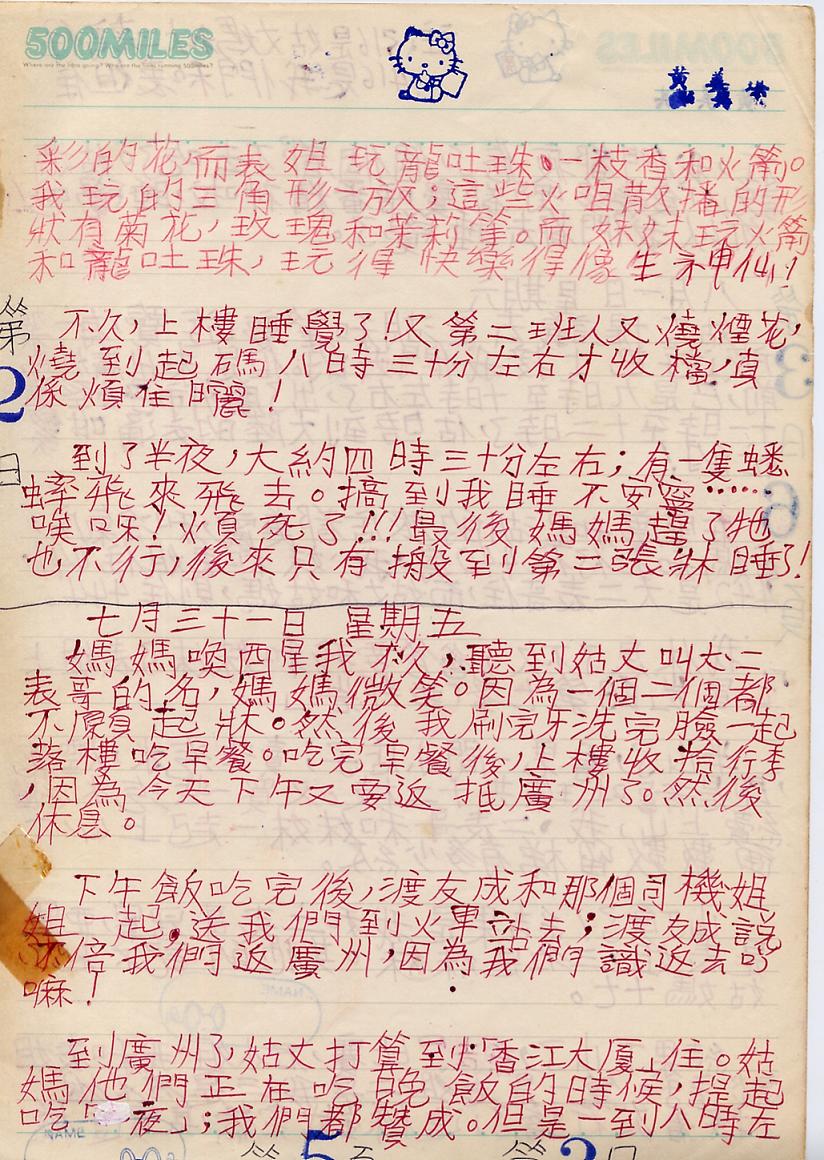 500MILES
Where are the lions going? Who are the lions running 500miles?
黃義
彩的花,而表姐玩龍吐珠。一枝香和火箭。
我玩的三角形一放;這些火咀散播的形
狀有菊花,玫瑰和茉莉等。而妹妹玩火箭
和龍吐珠,玩得快樂得像生神仙!
不久,上樓睡覺了!又第二班人又燒煙花,
燒到起碼八時三十分左右才收檔,真
係煩住曬!
第2日
到了半夜,大約四時三十分左右;有一隻蟋
蟀飛來飛去。搞到我睡不安寧……
唉呀!煩死了!!!最後媽媽趕了牠
也不行,後來只有搬到第二張牀睡了!
七月三十一日 星期五
媽媽喚醒我不久,聽到姑丈叫大二
表哥的名,媽媽微笑。因為一個二個都
不願起牀。然後我刷完牙洗完臉一起
落樓吃早餐。吃完早餐後,上樓收拾行李
,因為今天下午又要返抵廣州了。然後
休息。
下午飯吃完後,渡友成和那個司機姐
姐一起送我們到火車站去;渡友成說
不倍我們返廣州,因為我們識返去吖
嘛!
到廣州了,姑丈打算到「香江大厦」住。姑
媽他們正在吃晚飯的時候,提起
吃「夜」;我們都贊成。但是一到八時左
NAME
NAME
第5頁 第2日